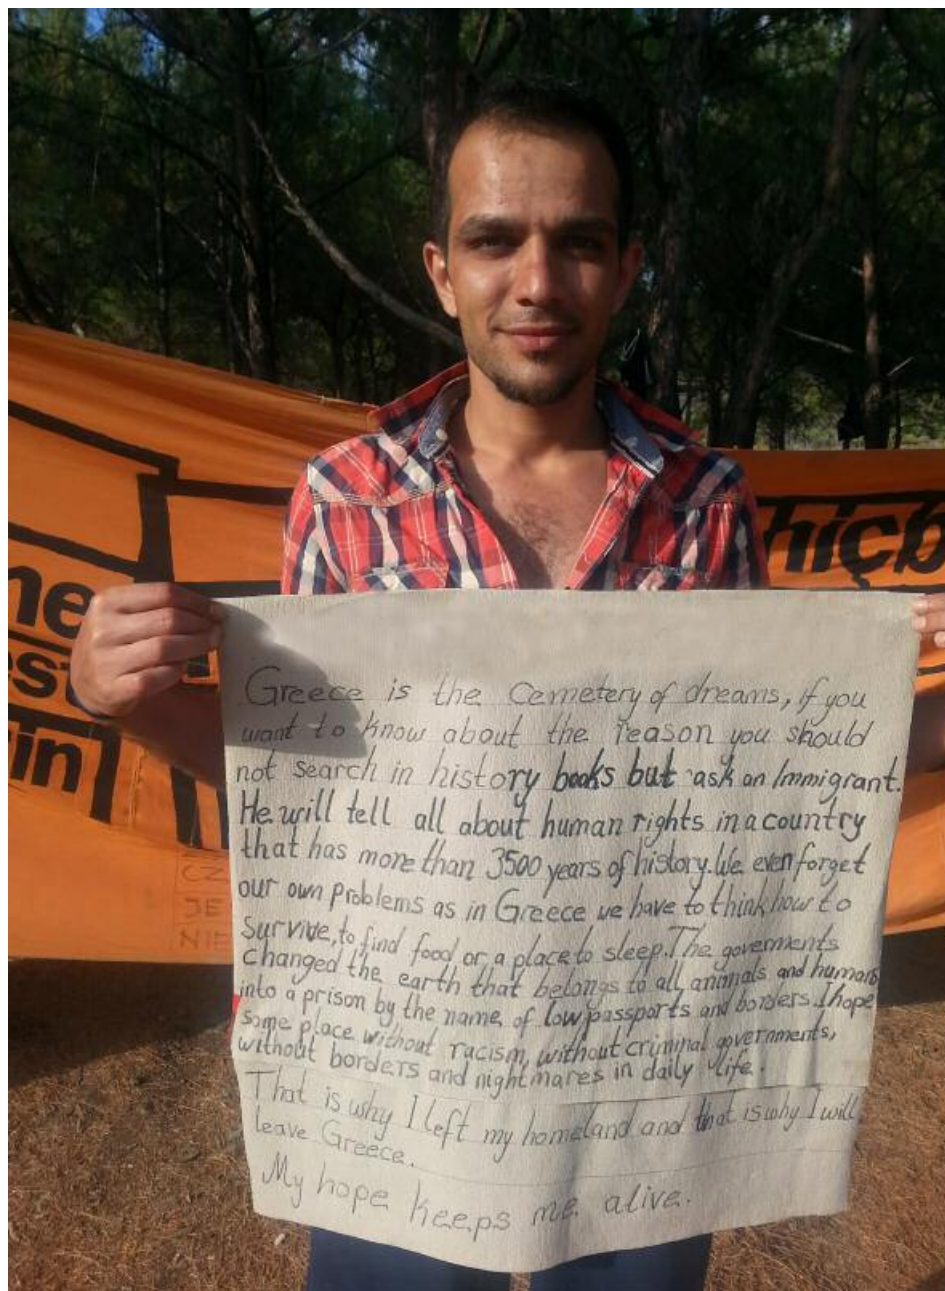 Greece is the Cemetery of dreams, if you
want to know about the reason you should
not search in history books but ask an Immigrant.
He will tell all about human rights in a country
that has more than 3500 years of history. We even forget
our own problems as in Greece we have to think how to
survive, to find food or a place to sleep. The goverments
changed the earth that belongs to all animals and humans
into a prison by the name of low passports and borders. I hope
some place without racism, without criminal governments,
without borders and nightmares in daily life.
That is why I left my homeland and that is why I will
leave Greece.
My hope keeps me alive.
ne
est
in
hiçb
CZ
JE
NIE